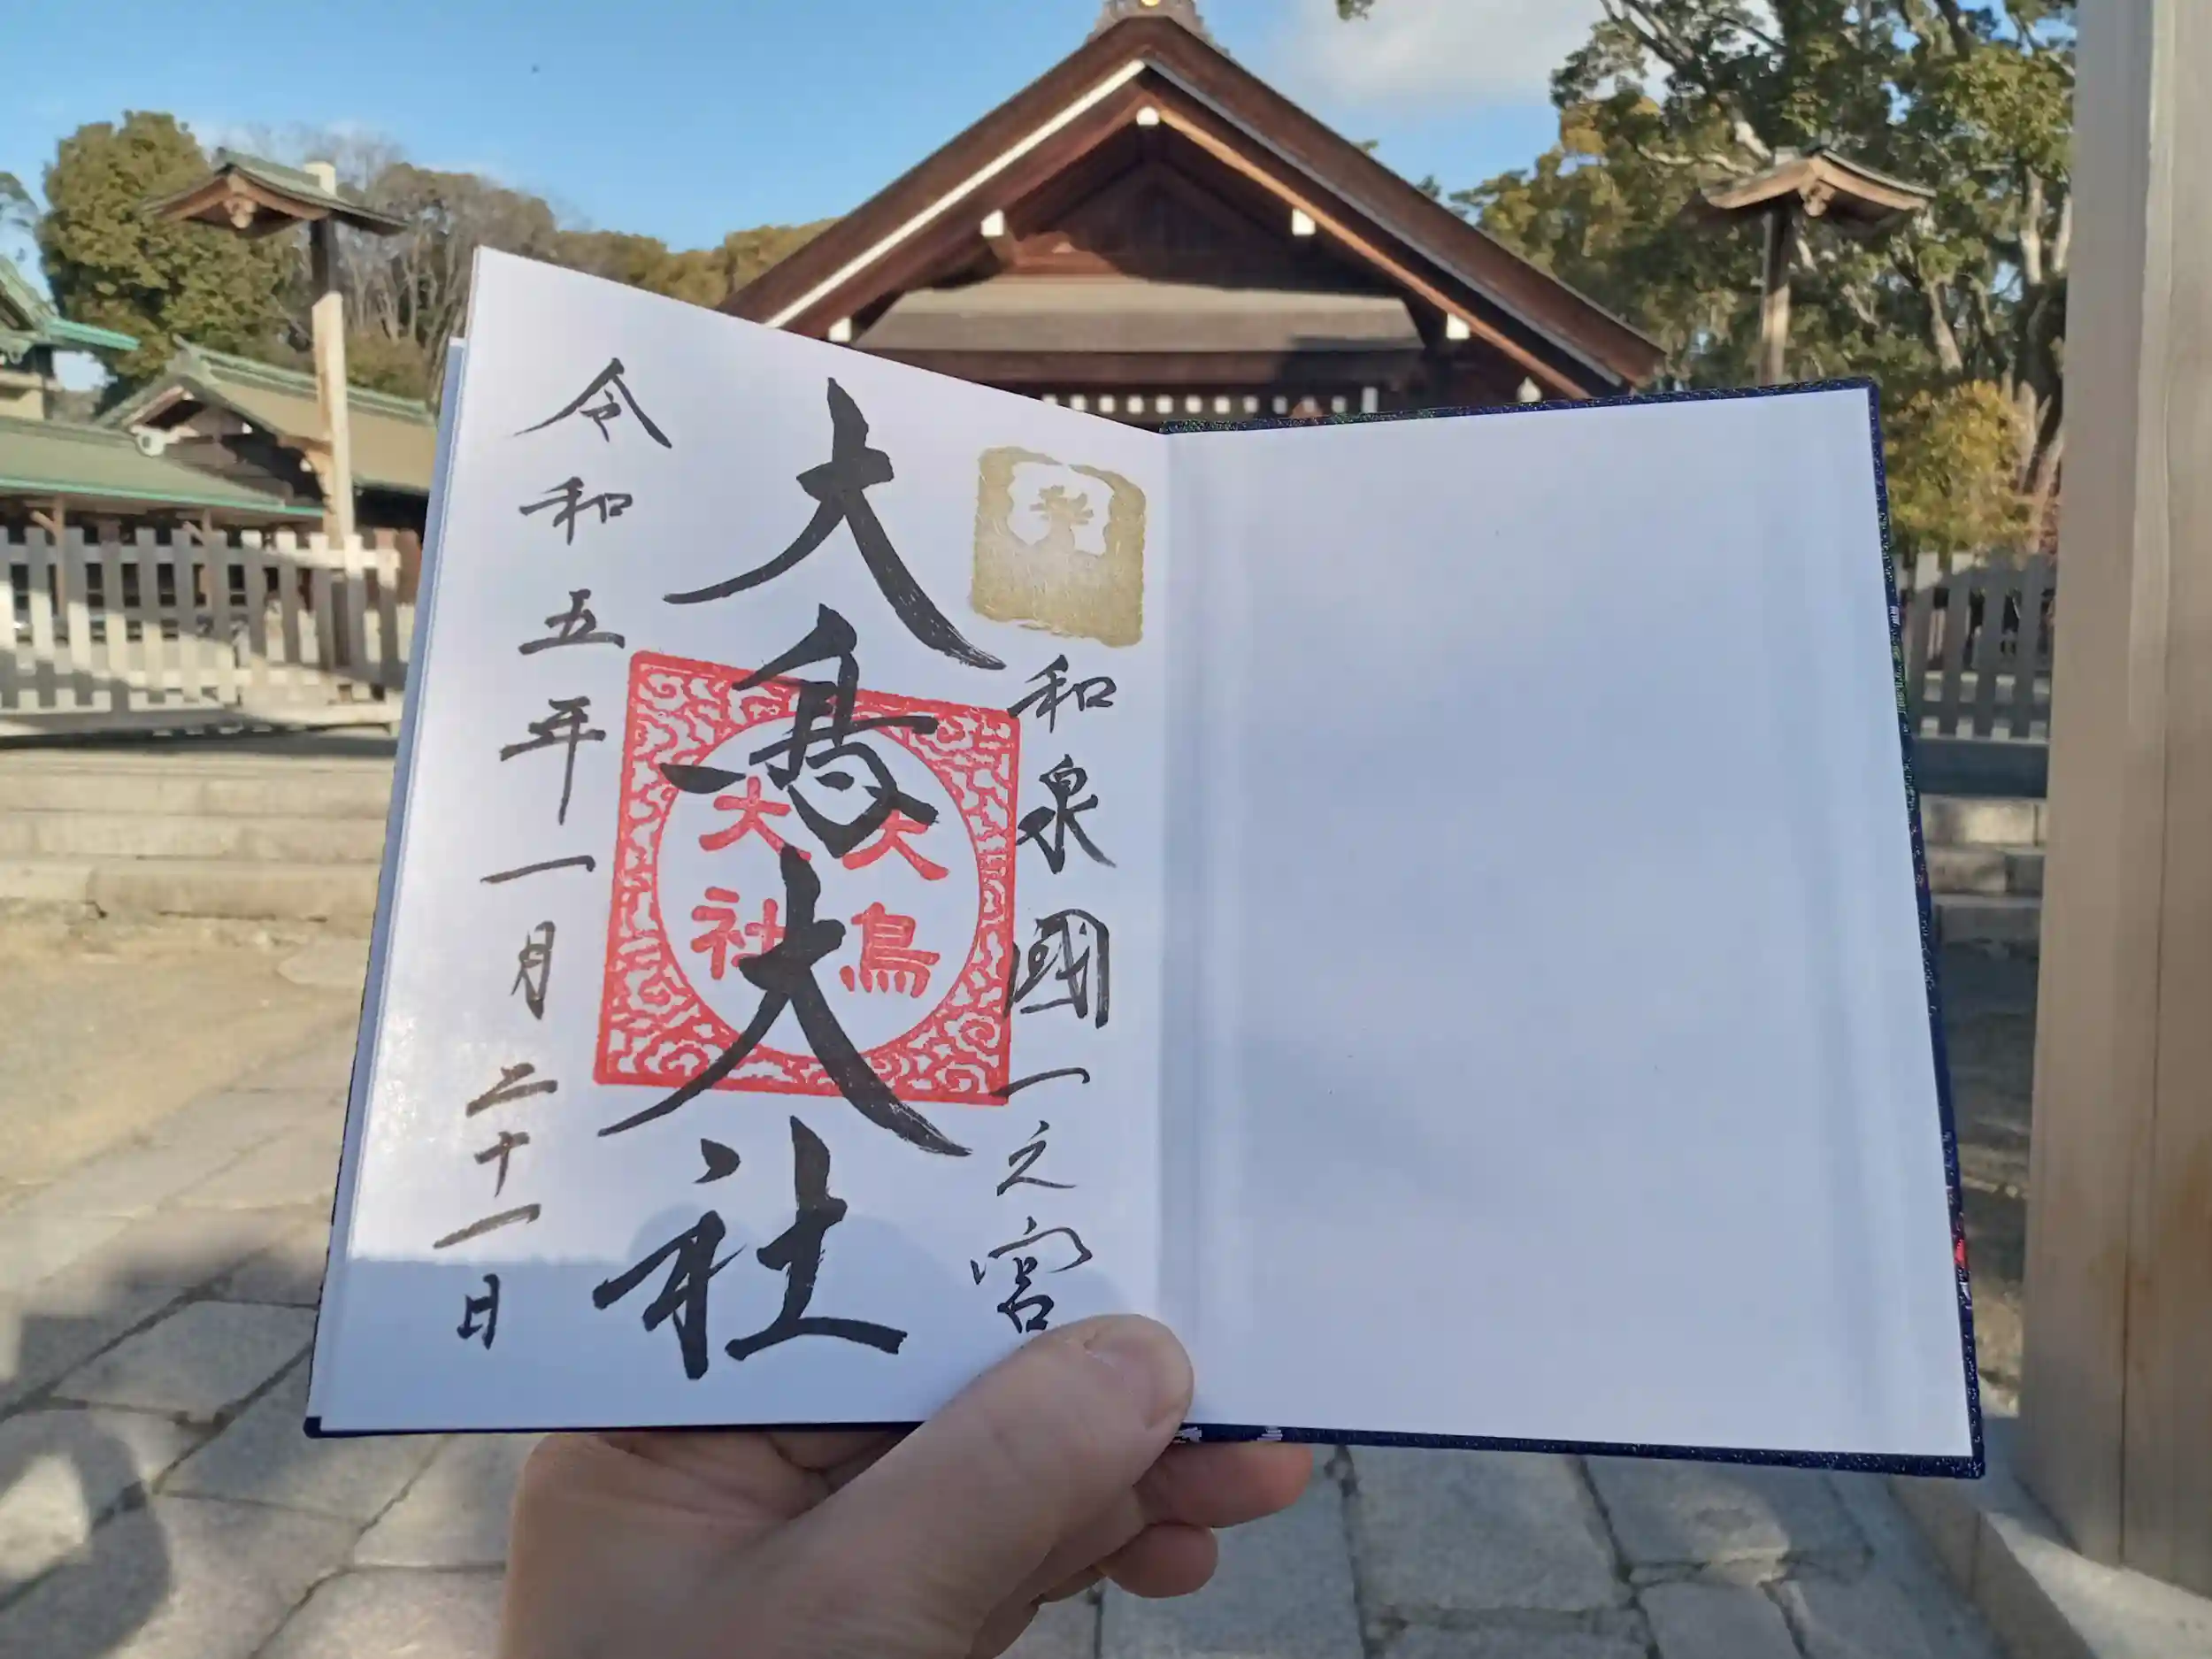 和泉國一之宮
大鳥大社
大鳥大社
令和五年一月二十一日